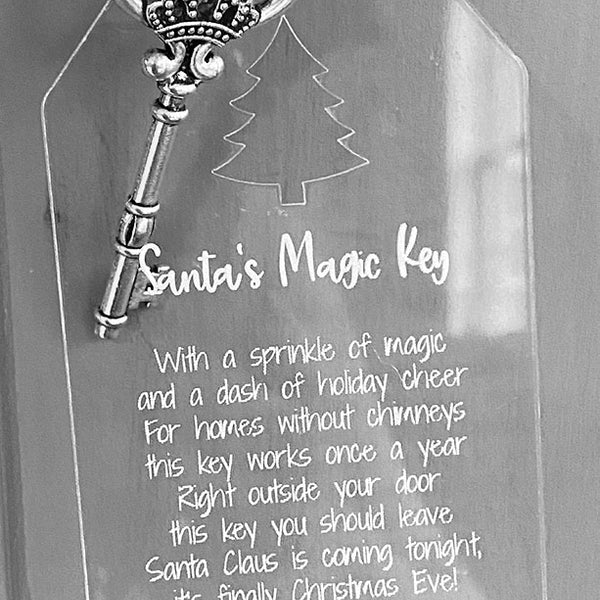 Santa's Magic Key
With a sprinkle of magic
and a dash of holiday cheer
For homes without chimneys
this key works once a year
Right outside your door
this key you should leave
Santa Claus is coming tonight,
it's finally Christmas Eve!